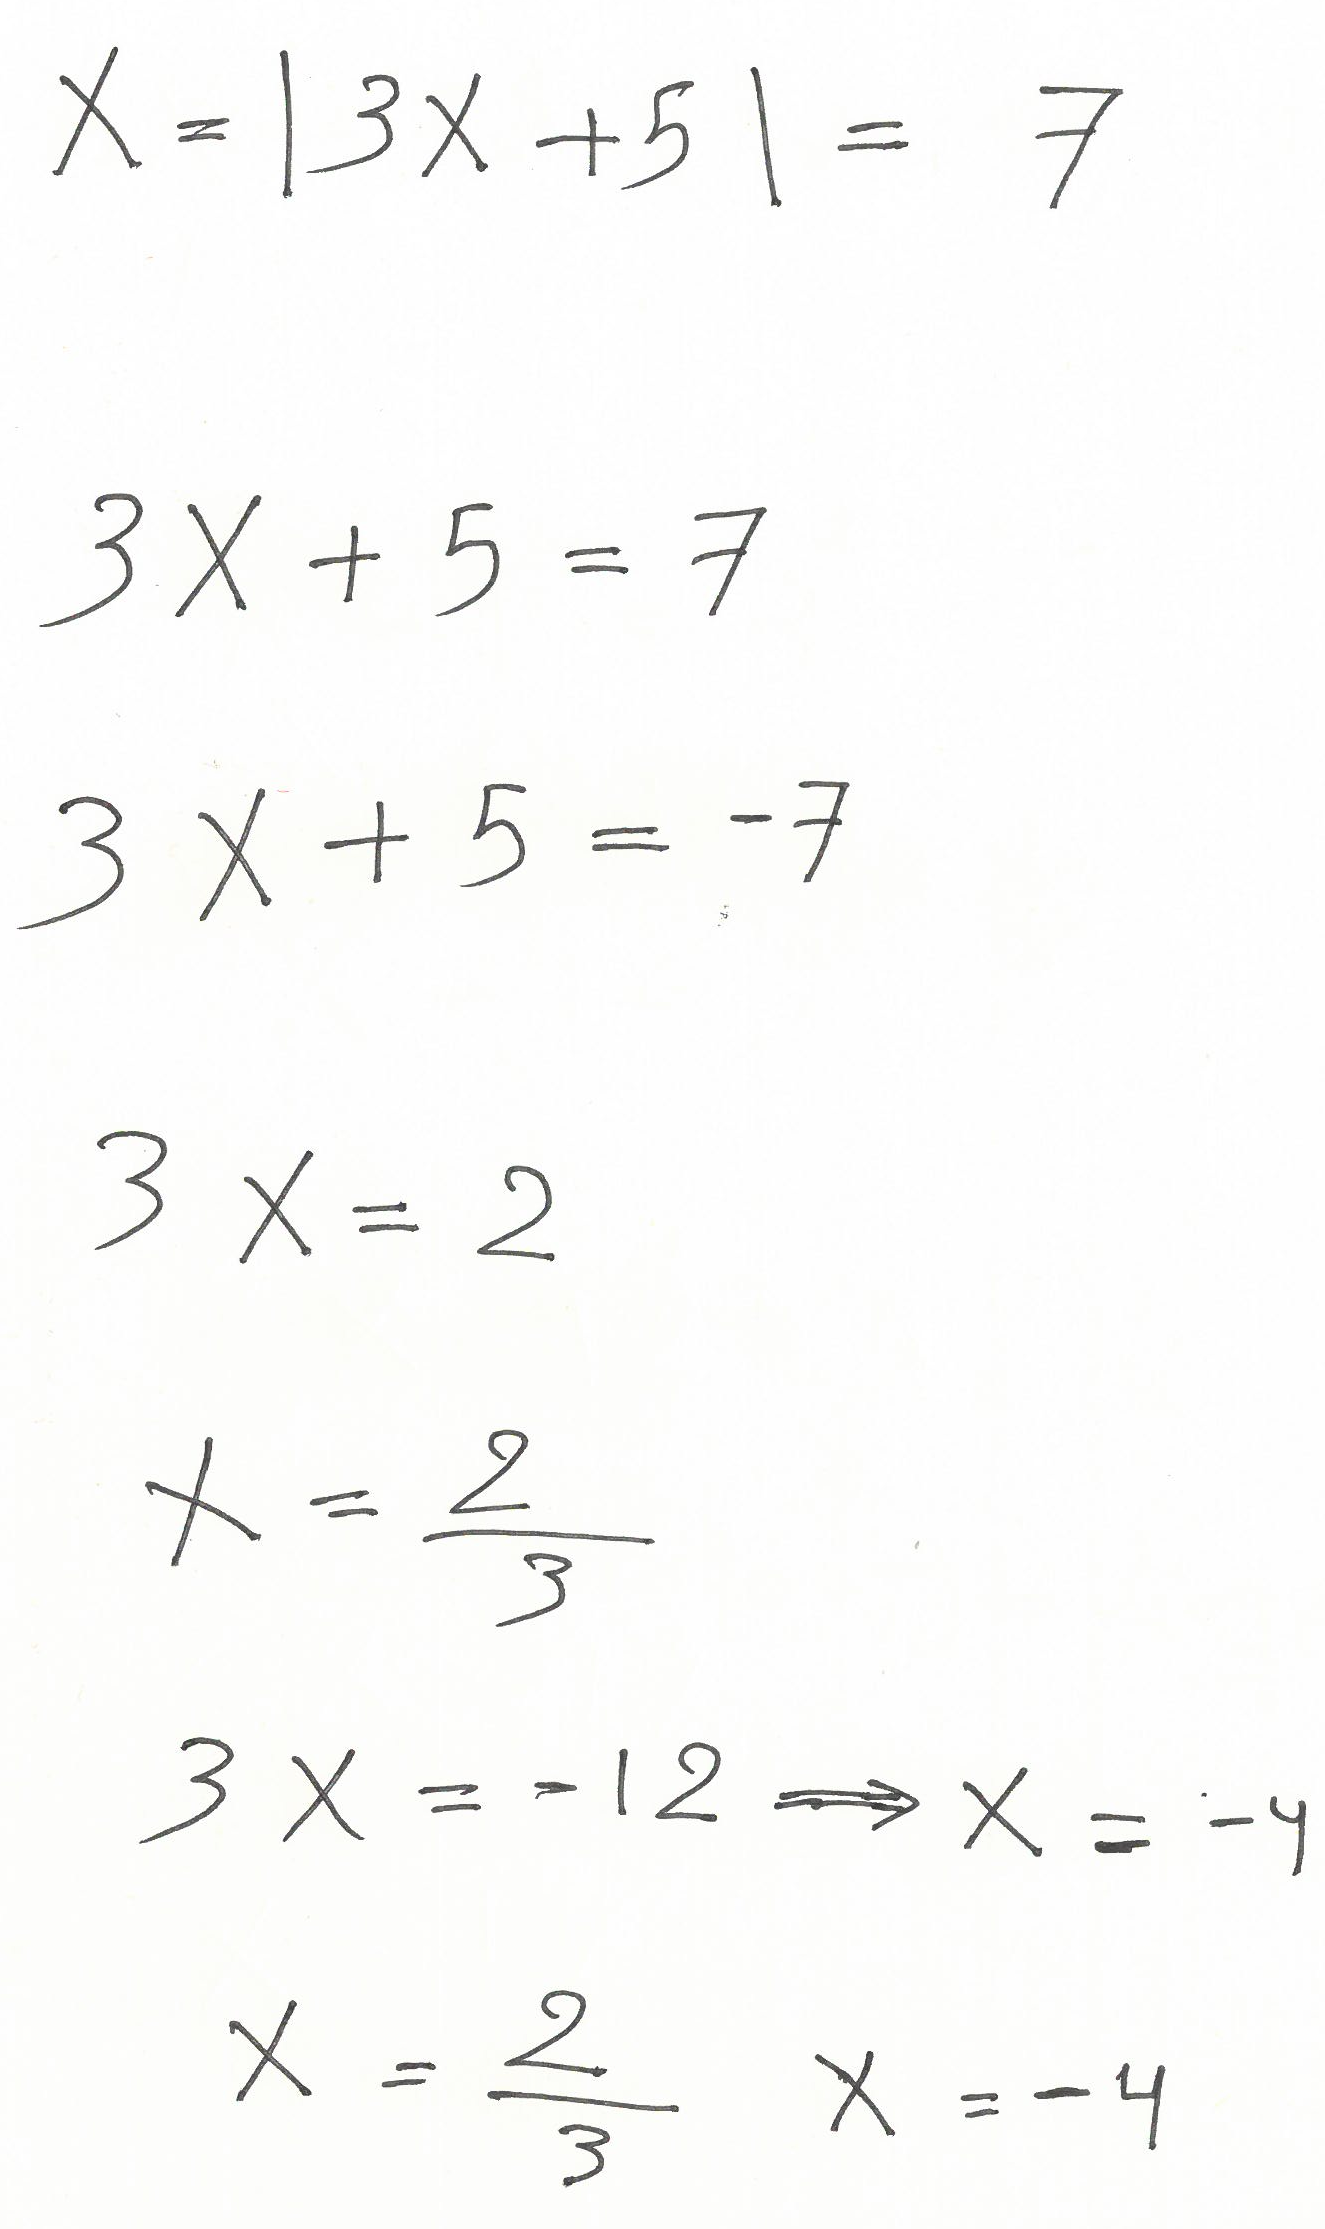 X = |3X + 5| = 7
3X + 5 = 7
3X + 5 = -7
3X = 2
X = 2/3
3X = -12 ⟹ X = -4
X = 2/3 X = -4